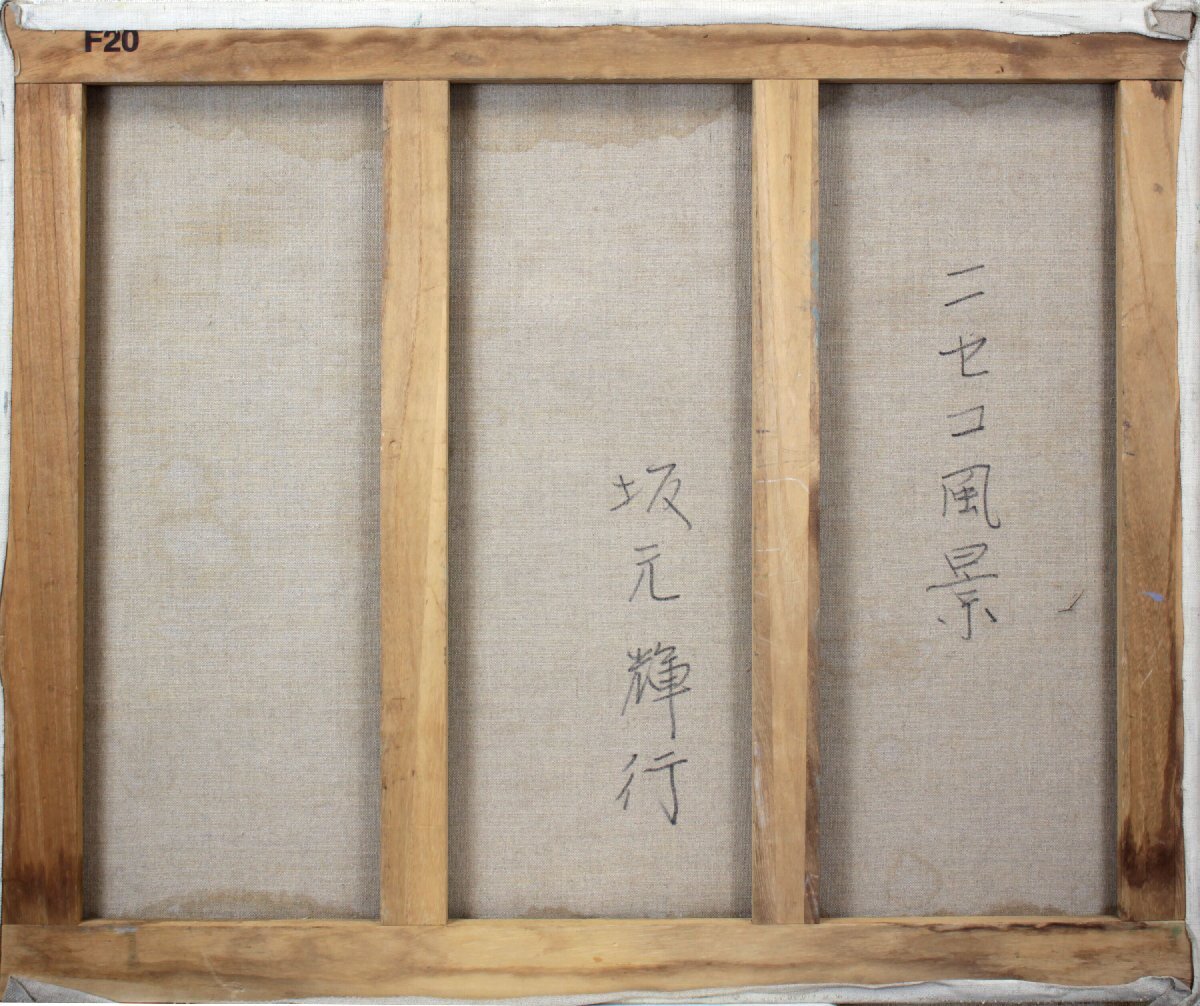 F20
ニセコ風景
坂元輝行